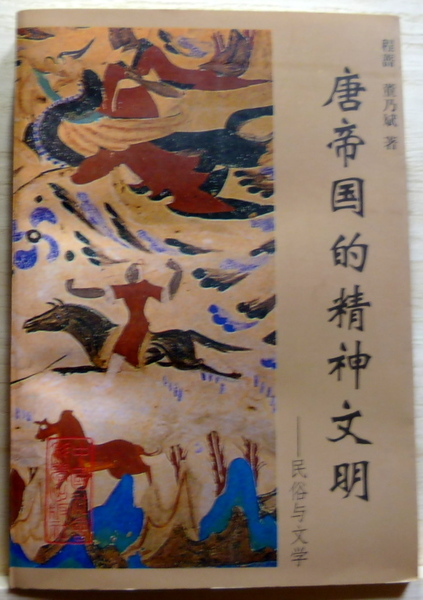 程蔷 董乃斌 著
唐帝国的精神文明
——民俗与文学